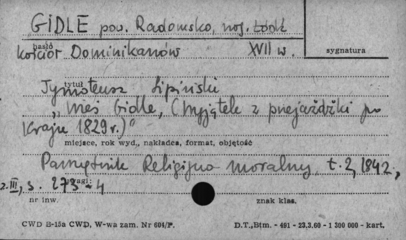 GIDLE pow. Radomsko, woj. Łódź
hasło
Kościół Dominikanów XVII w.
sygnatura
tytuł
Tymoteusz Lipiński
„Wieś Gidle, (Wyjątek z przejażdżki po
Kraju 1829 r.)"
miejsce, rok wyd., nakładca, format, objętość
Pamiętnik Religijno-moralny t. 2, 1842,
z. III, s. 273-4
uwagi
nr inw. znak klas.
CWD B-15a CWD, W-wa zam. Nr 604/P. D.T.,Btm. - 491 - 23.3.60 - 1 200 000 - kart.